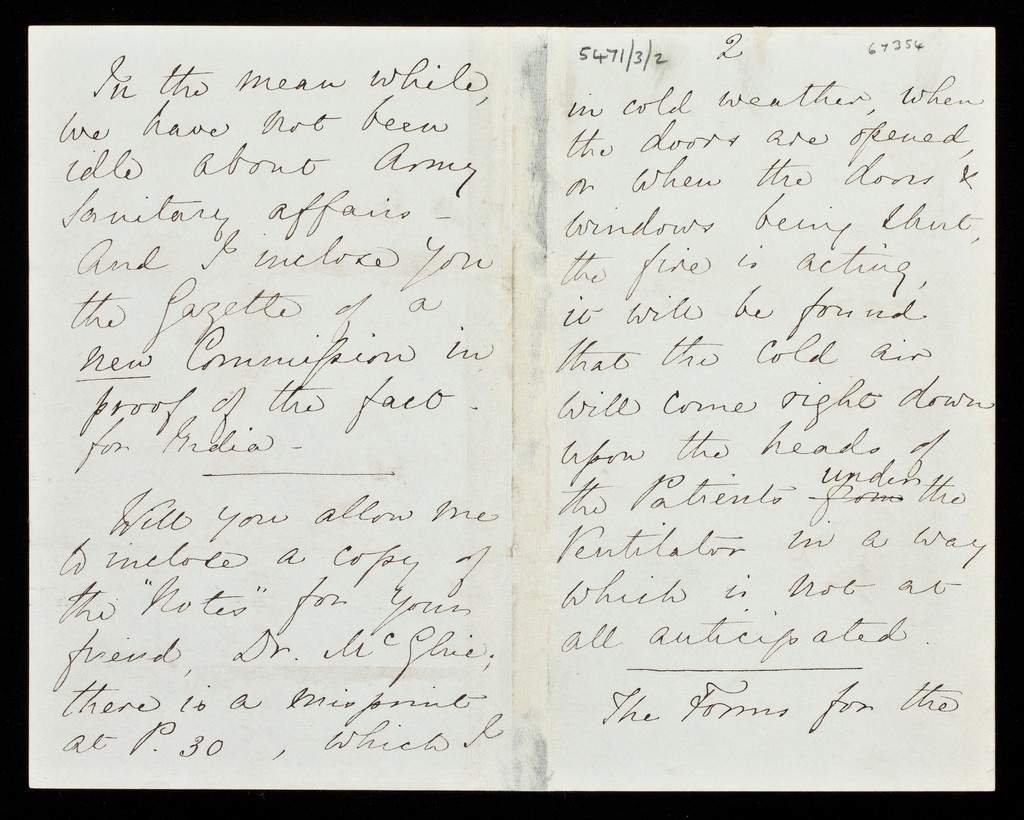 In the mean while,
we have not been
idle about Army
Sanitary affairs -
And I inclose you
the Gazette of a
new Commission in
proof of the fact -
for India -
Will you allow me
to inclose a copy of
the "Notes" for your
friend, Dr. McGhie;
there is a misprint
at P. 30 , which I
5471/3/2
2
67354
in cold weather, when
the doors are opened,
or when the doors &
windows being shut,
the fire is acting,
it will be found
that the cold air
will come right down
upon the heads of
the Patients from under the
Ventilator in a way
which is not at
all anticipated.
The Forms for the